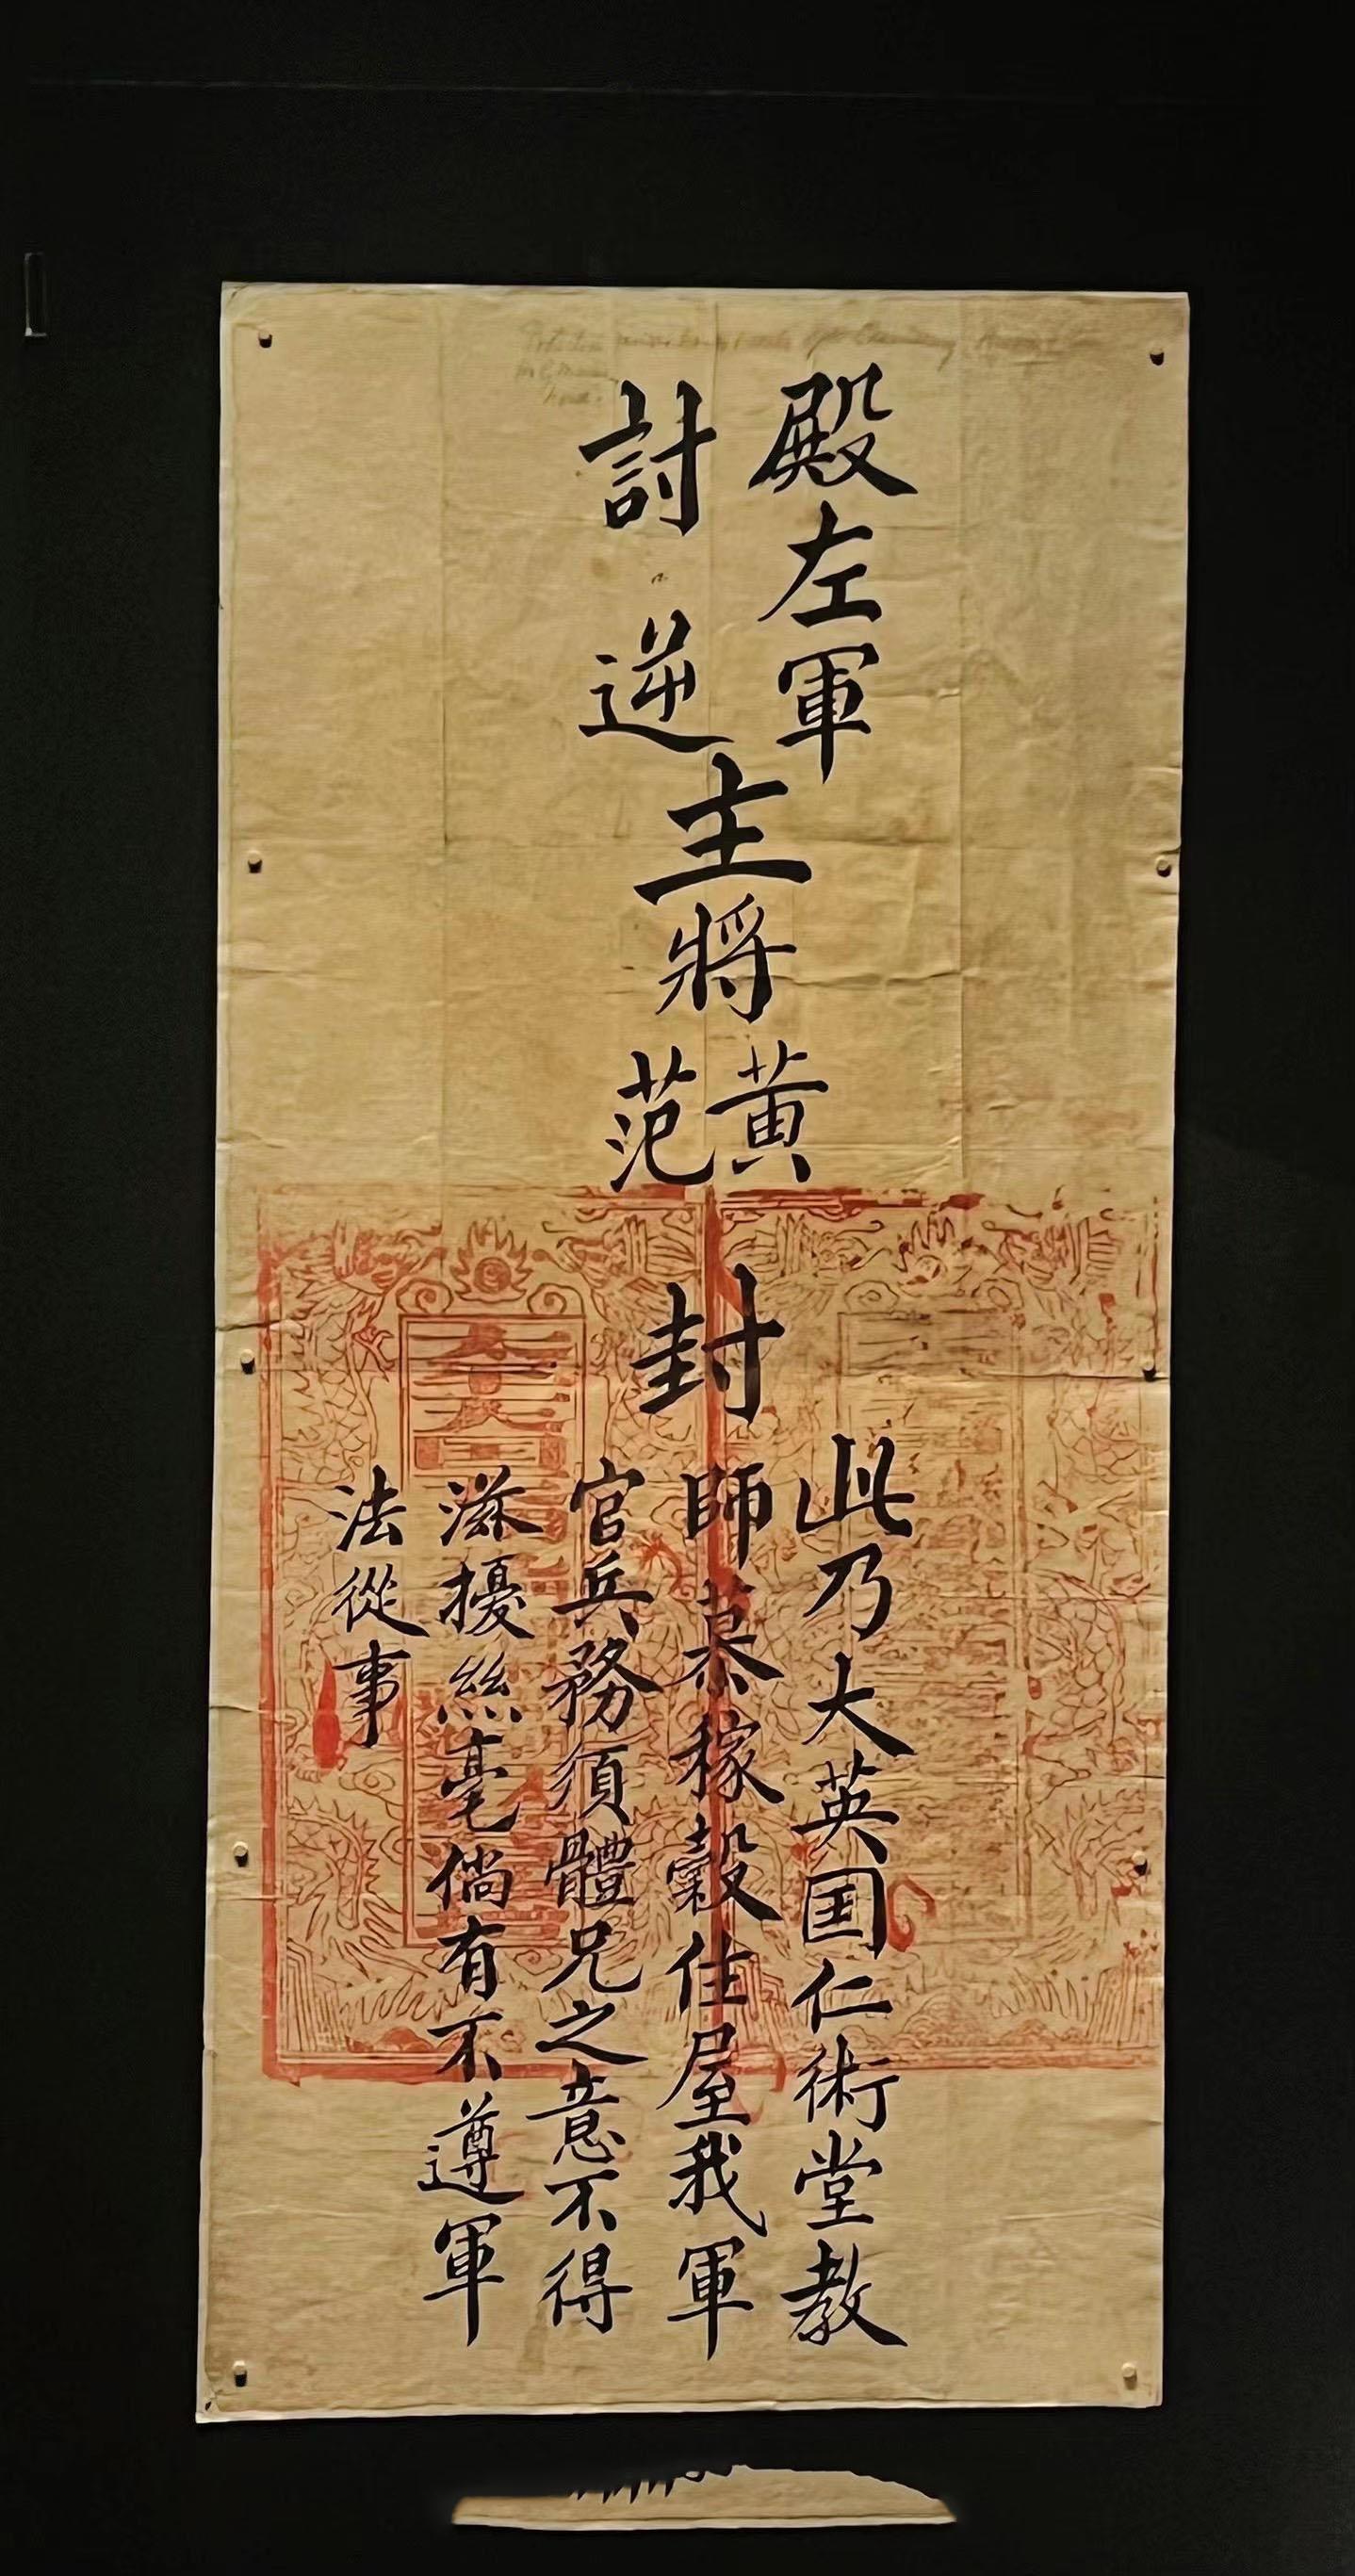 殿左軍
討逆
主將
黃
范
封
此乃大英囯仁術堂教
師慕稼穀住屋我軍
官兵務須體兄之意不得
滋擾絲毫倘有不遵軍
法從事
太平天囯